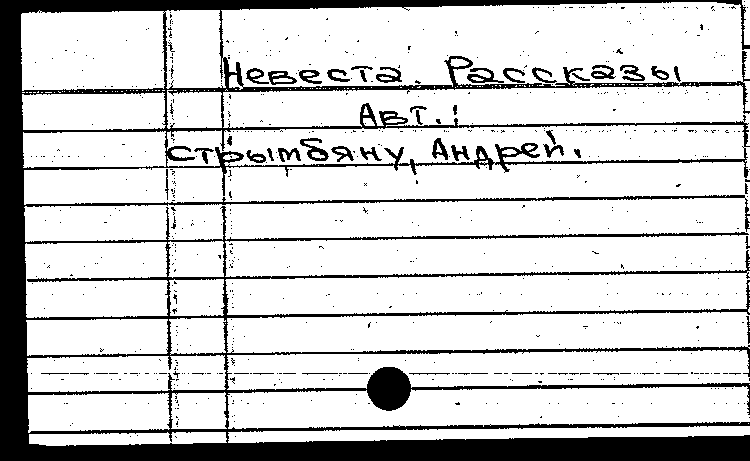 Невеста. Рассказы
Авт.:
Стрымбяну, Андрей.